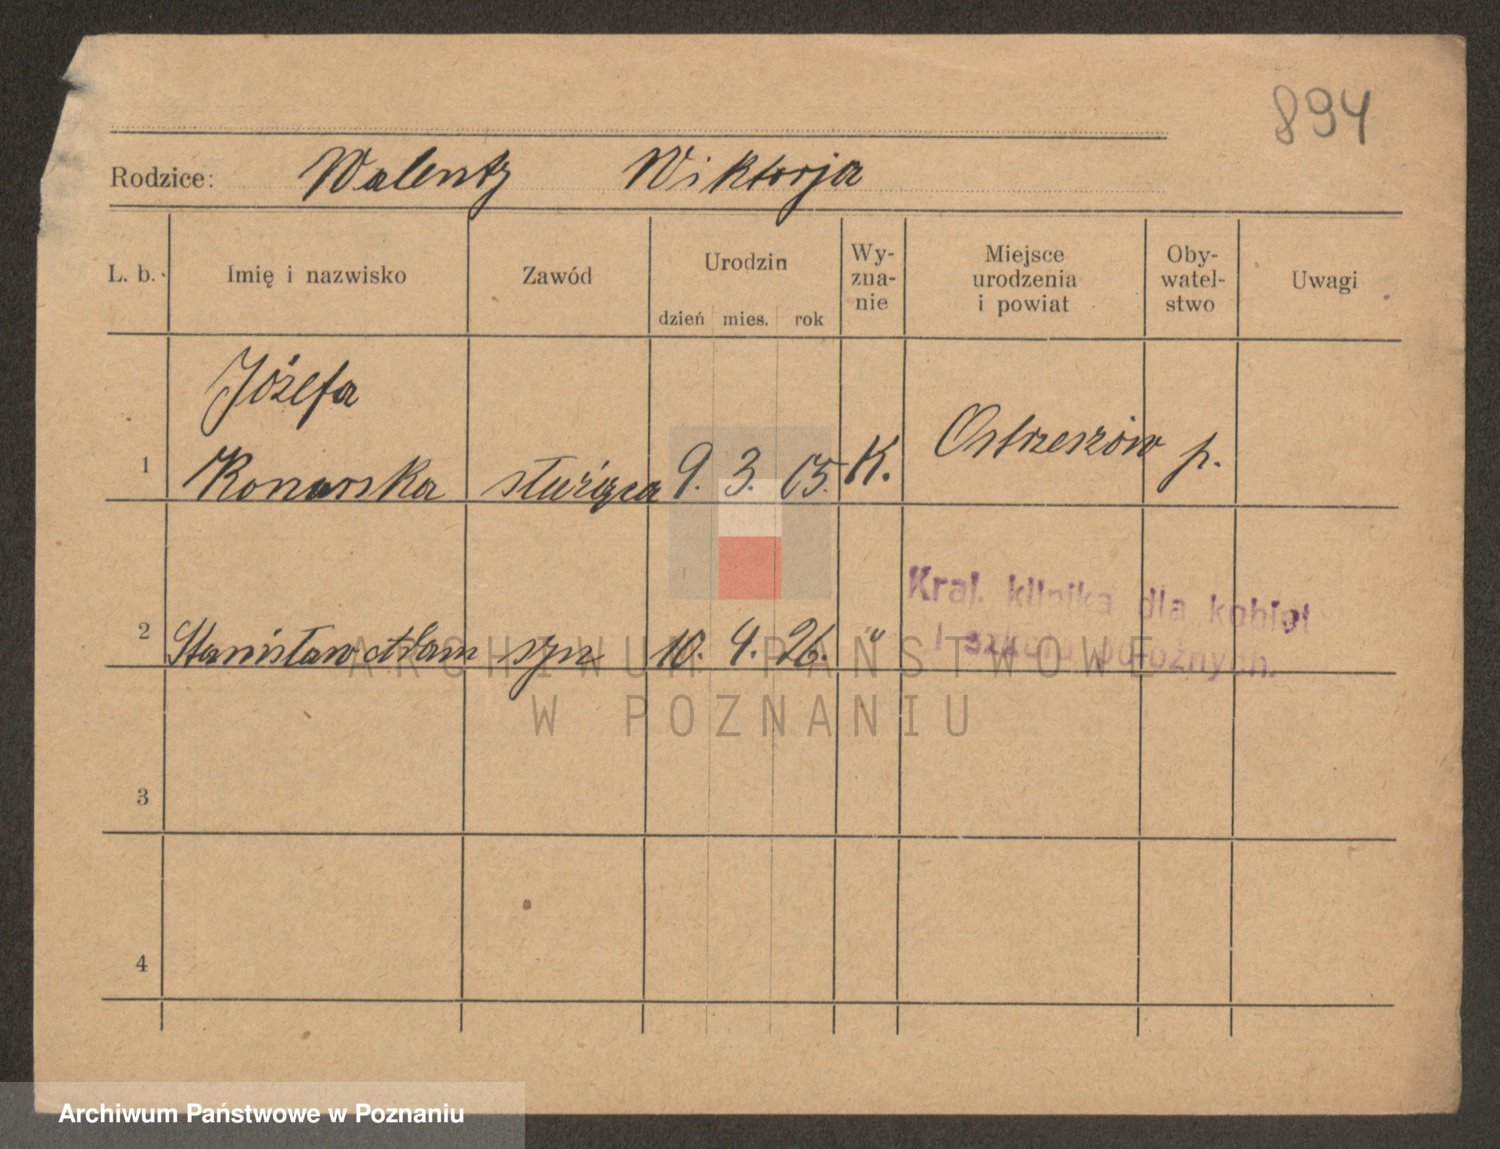 894
Rodzice: Walenty Wiktorja
L. b. Imię i nazwisko Zawód Urodzin Wy- Miejsce Oby- Uwagi
zna- urodzenia watel-
dzień mies. rok nie i powiat stwo
Józefa
1 Konarska służąca 9. 3. 05. K. Ostrzeszów p.
2 Stanisław Adam syn 10. 4. 26. " Kraj. klinika dla kobiet
i szkoła położnych.
ARCHIWUM PAŃSTWOWE
W POZNANIU
3
4
Archiwum Państwowe w Poznaniu